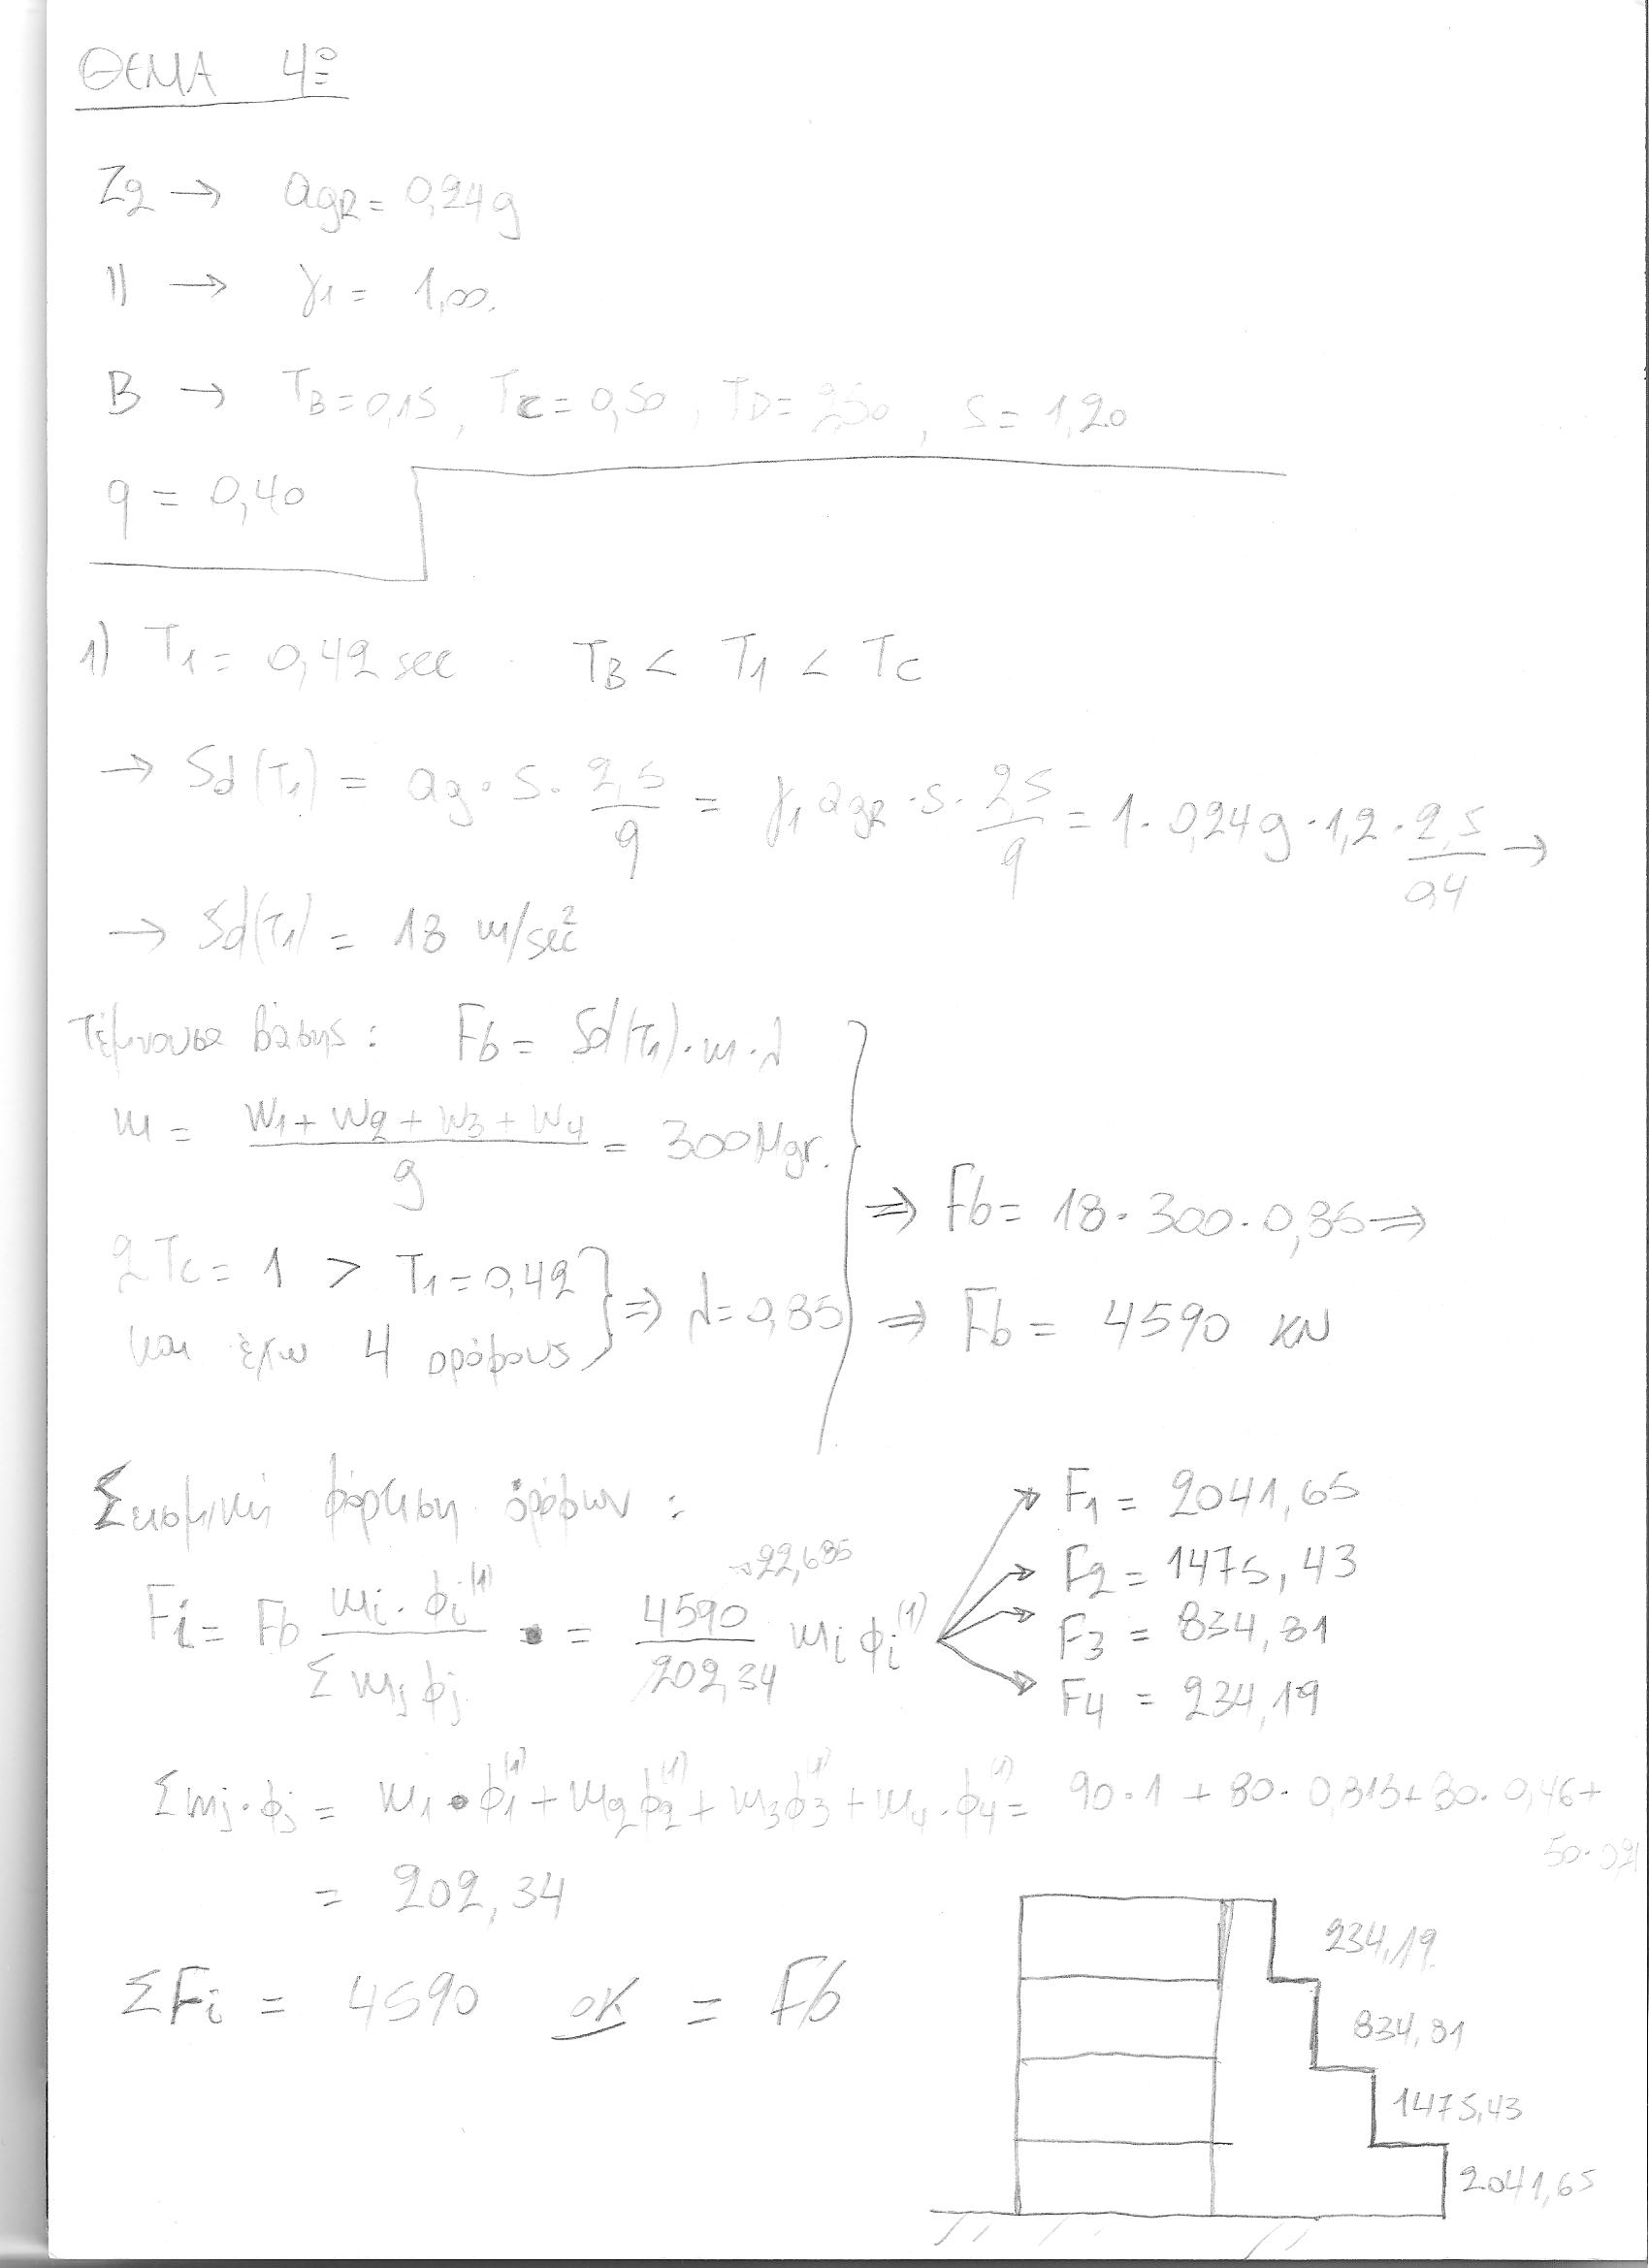 ΘΕΜΑ 4º
Z2 → agR = 0,24g
II → γ1 = 1,00.
B → TB = 0,15, Tc = 0,50, TD = 2,50, S = 1,20
q = 0,40
1) T1 = 0,42 sec . TB < T1 < TC
→ Sd(T1) = ag · S · 2,5/q = γ1 agR · S · 2,5/q = 1 · 0,24g · 1,2 · 2,5/0,4 →
→ Sd(T1) = 18 m/sec²
Τέμνουσα βάσης : Fb = Sd(T1) · m · λ
m = (W1 + W2 + W3 + W4)/g = 300 Mgr.
⇒ Fb = 18 · 300 · 0,85 ⇒
2Tc = 1 > T1 = 0,42
και έχω 4 ορόφους } ⇒ λ = 0,85
⇒ Fb = 4590 KN
Σεισμική φόρτιση ορόφων :
Fi = Fb (mi · φi⁽¹⁾)/(Σ mj φj) = 4590/202,34 mi φi⁽¹⁾
→ 22,685
F1 = 2041,65
F2 = 1475,43
F3 = 834,81
F4 = 234,19
Σmj · φj = m1 · φ1⁽¹⁾ + m2 φ2⁽¹⁾ + m3 φ3⁽¹⁾ + m4 · φ4⁽¹⁾ = 90 · 1 + 80 · 0,813 + 80 · 0,46 +
50 · 0,21
= 202,34
ΣFi = 4590 OK = Fb
234,19
834,81
1475,43
2041,65